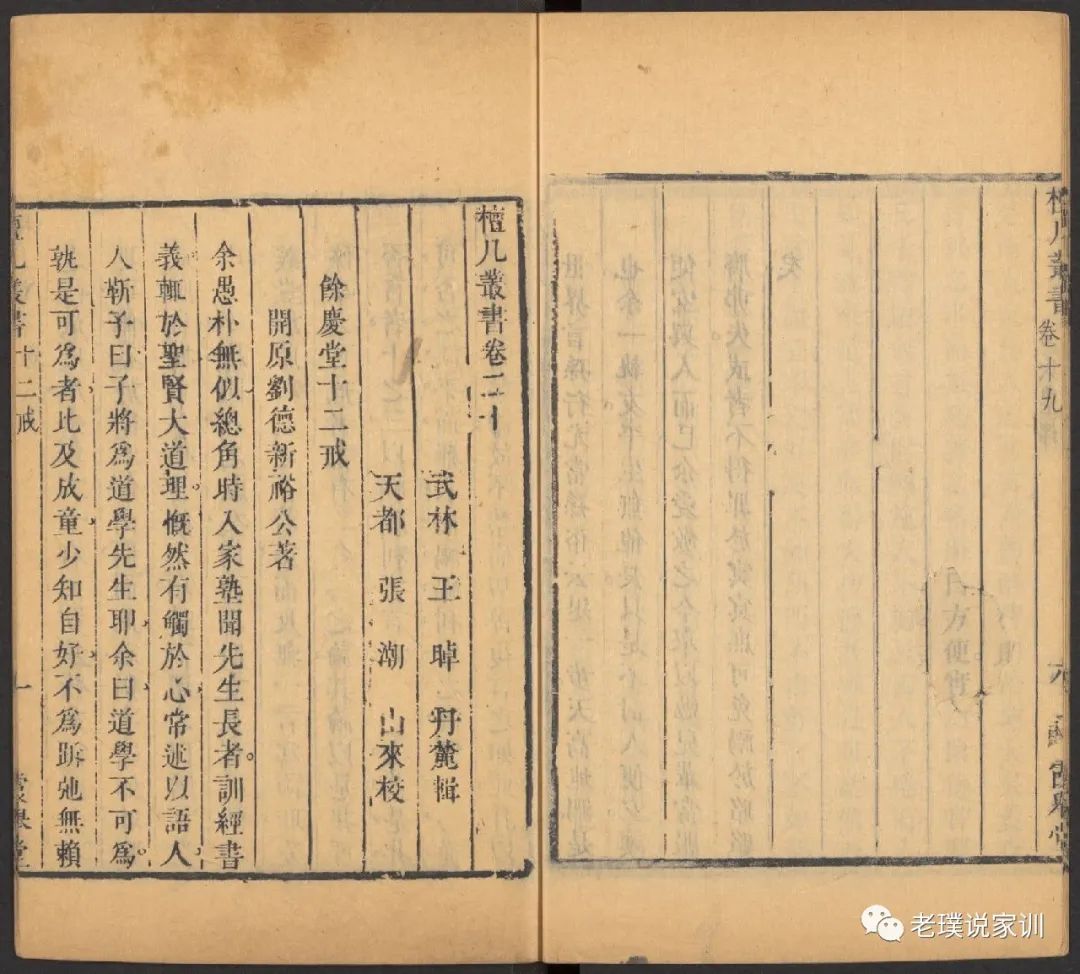 檀几叢書 卷十九 六 霞舉堂
檀几叢書卷二十
武林 王晫 丹麓輯
天都 張潮 山來校
餘慶堂十二戒
開原劉德新裕公著
余愚朴無似總角時入家塾聞先生長者訓經書
義輒於聖賢大道理慨然有觸於心常述以語人
人靳予曰子將爲道學先生耶余曰道學不可爲
孰是可爲者比及放童少知自好不爲跅弛無賴
檀几叢書 十二戒 一 霞舉堂
老璞说家训